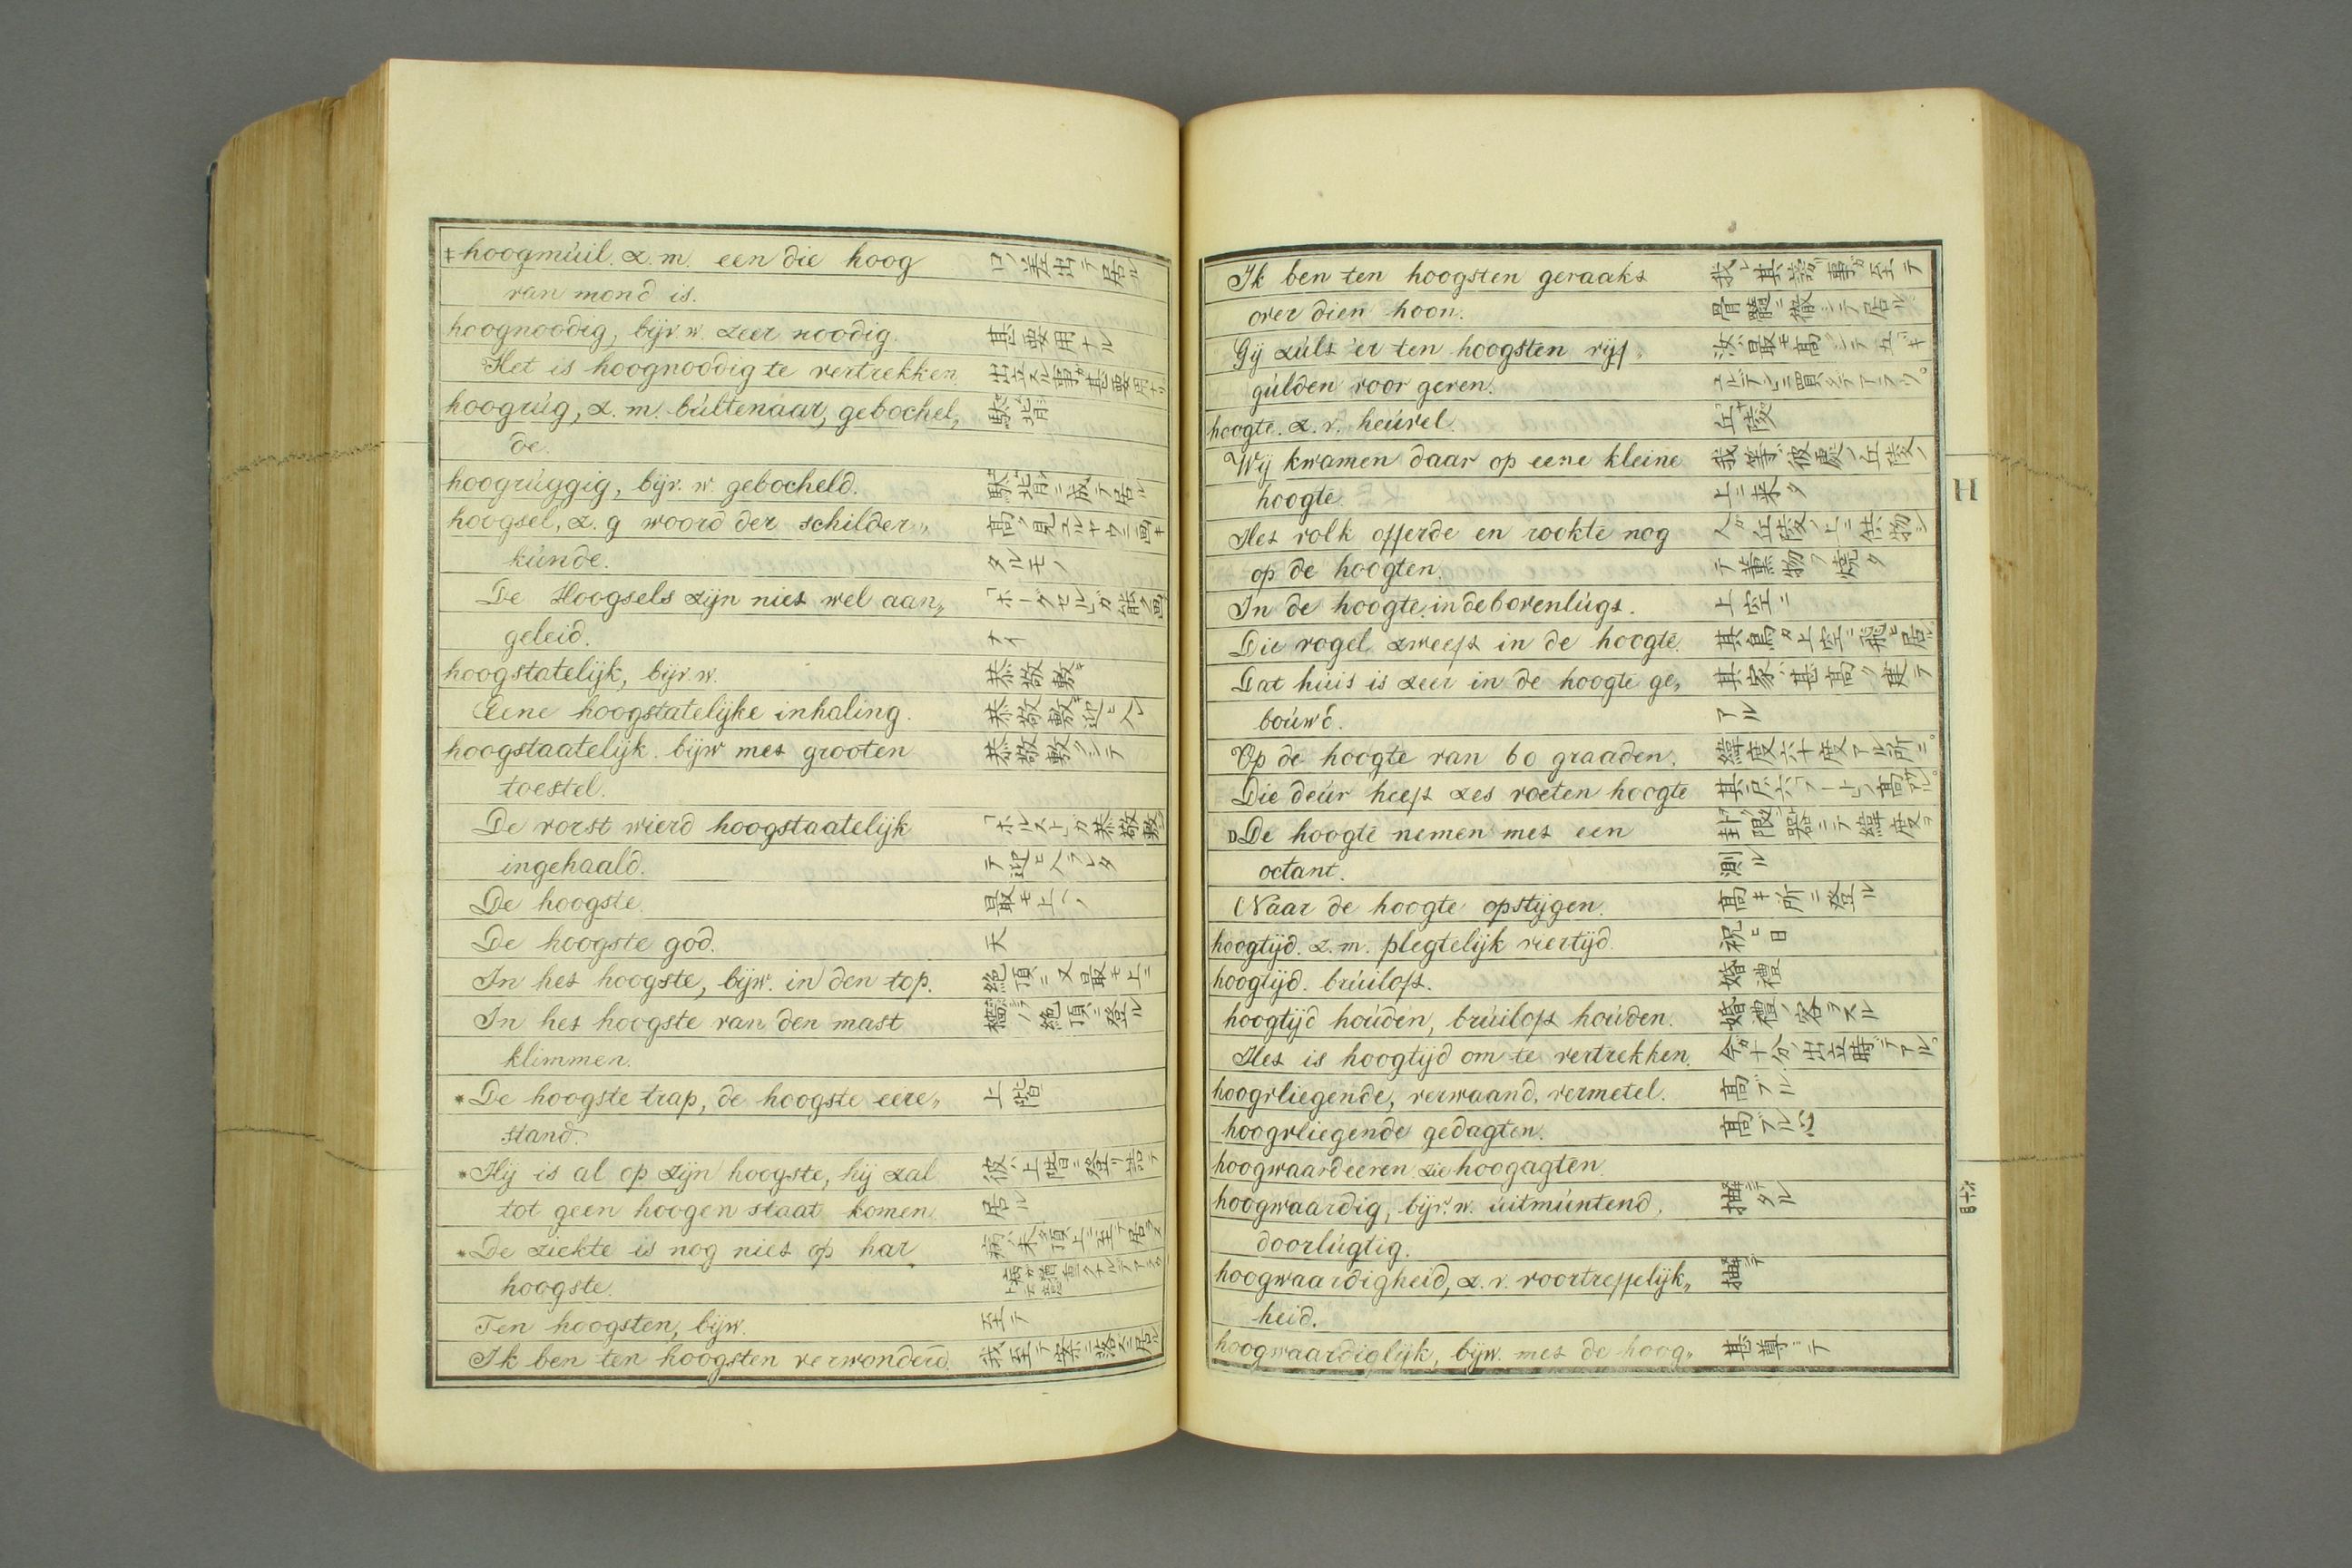 ‡hoogmúil. z.m. een die hoog 口ノ差出テ居ル
van mond is.
hoognoodig, bijv. w. zeer noodig. 甚要用ナル
Het is hoognoodig te vertrekken. 出立スル事ガ甚要用ナリ
hoogrúg, z. m. búltenaar, gebochel„ 駄背
de.
hoogrúggig, bijv. w. gebocheld. 駄背ニ成テ居ル
hoogsel, z. g woord der schilder„ 高ク見エルヤウニ画キ
kúnde. タルモノ
De Hoogsels zijn niet wel aan„ 「ホーグセル」ガ能ク画
geleid. ナイ
hoogstatelijk, bijv. w. 恭敬敷キ
Eene hoogstatelijke inhaling. 恭敬敷キ迎ヒ入レ
hoogstaatelijk. bijw met grooten 恭敬敷クシテ
toestel.
De vorst wierd hoogstaatelijk 「ホルスト」ガ恭敬敷
ingehaald. テ迎ヒ入ラレタ
De hoogste. 最モ上ヘノ
De hoogste god. 天
In het hoogste, bijw. in den top. 絶頂ニ又最モ上ニ
In het hoogste van den mast 檣ノ絶頂ニ登ル
klimmen.
*De hoogste trap, de hoogste eere„ 上階
stand.
*Hij is al op zijn hoogste, hij zal 彼ハ上階ニ登リ詰テ
tot geen hoogen staat komen. 居ル
*De ziekte is nog niet op har 病ハ未タ頂上ニ至テ居ラヌ
hoogste.
Ten hoogsten, bijw. 至テ
Ik ben ten hoogsten verwonderd. 我至テ案ニ落ズニ居ル
Ik ben ten hoogsten geraakt 我レ其謗リ事ガ至テ
over dien hoon. 骨髓ニ徹シテ居ル
Gij zúlt 'er ten hoogsten vijf 汝ハ最モ高クシテ五
gúlden voor geven. ユルデンニ買タデアラウ。
hoogte. z. v. heúvel. 丘陵
Wij kwamen daar op eene kleine 我等ハ彼處ノ丘陵ノ
hoogte. 上ニ来タ
Het volk offerde en rookte nog 人ガ丘陵ノ上ニ供物シ
op de hoogten. テ薫物ヲ焼タ
In de hoogte. in de bovenlúgt. 上空ニ
Die vogel zweeft in de hoogte. 其鳥ガ上空ニ飛ヒ居ル
Dat húis is zeer in de hoogte ge„ 其家ハ甚高ク建テ
boúwd. アル
Op de hoogte van 60 graaden. 緯度六十度アル所ニ。
Die deúr heeft zes voeten hoogte 其戸ハ六「フート」ノ高サアル。
DDe hoogte nemen met een 封限器ニテ緯度ヲ
octant. 測ル
Naar de hoogte opstijgen. 高キ所ニ登ル
hoogtijd. z. m. plegtelijk viertijd. 祝ヒ日
hoogtijd. brúiloft. 婚禮
hoogtijd hoúden, brúiloft hoúden. 婚禮ノ客ヲスル
Het is hoogtijd om te vertrekken. 今ガ十分ノ出立時デアル。
hoogvliegende, verwaand, vermetel. 高ブル
hoogvliegende gedagten. 高ブル心
hoogwaardeeren zie hoogagten.
hoogwaardig, bijv. w. úitmúntend, 抽デタル
doorlúgtig.
hoogwaardigheid, z. v. voortreffelijk„ 抽デ
heid.
hoogwaardiglijk, bijw. met de hoog„ 甚尊デ
H